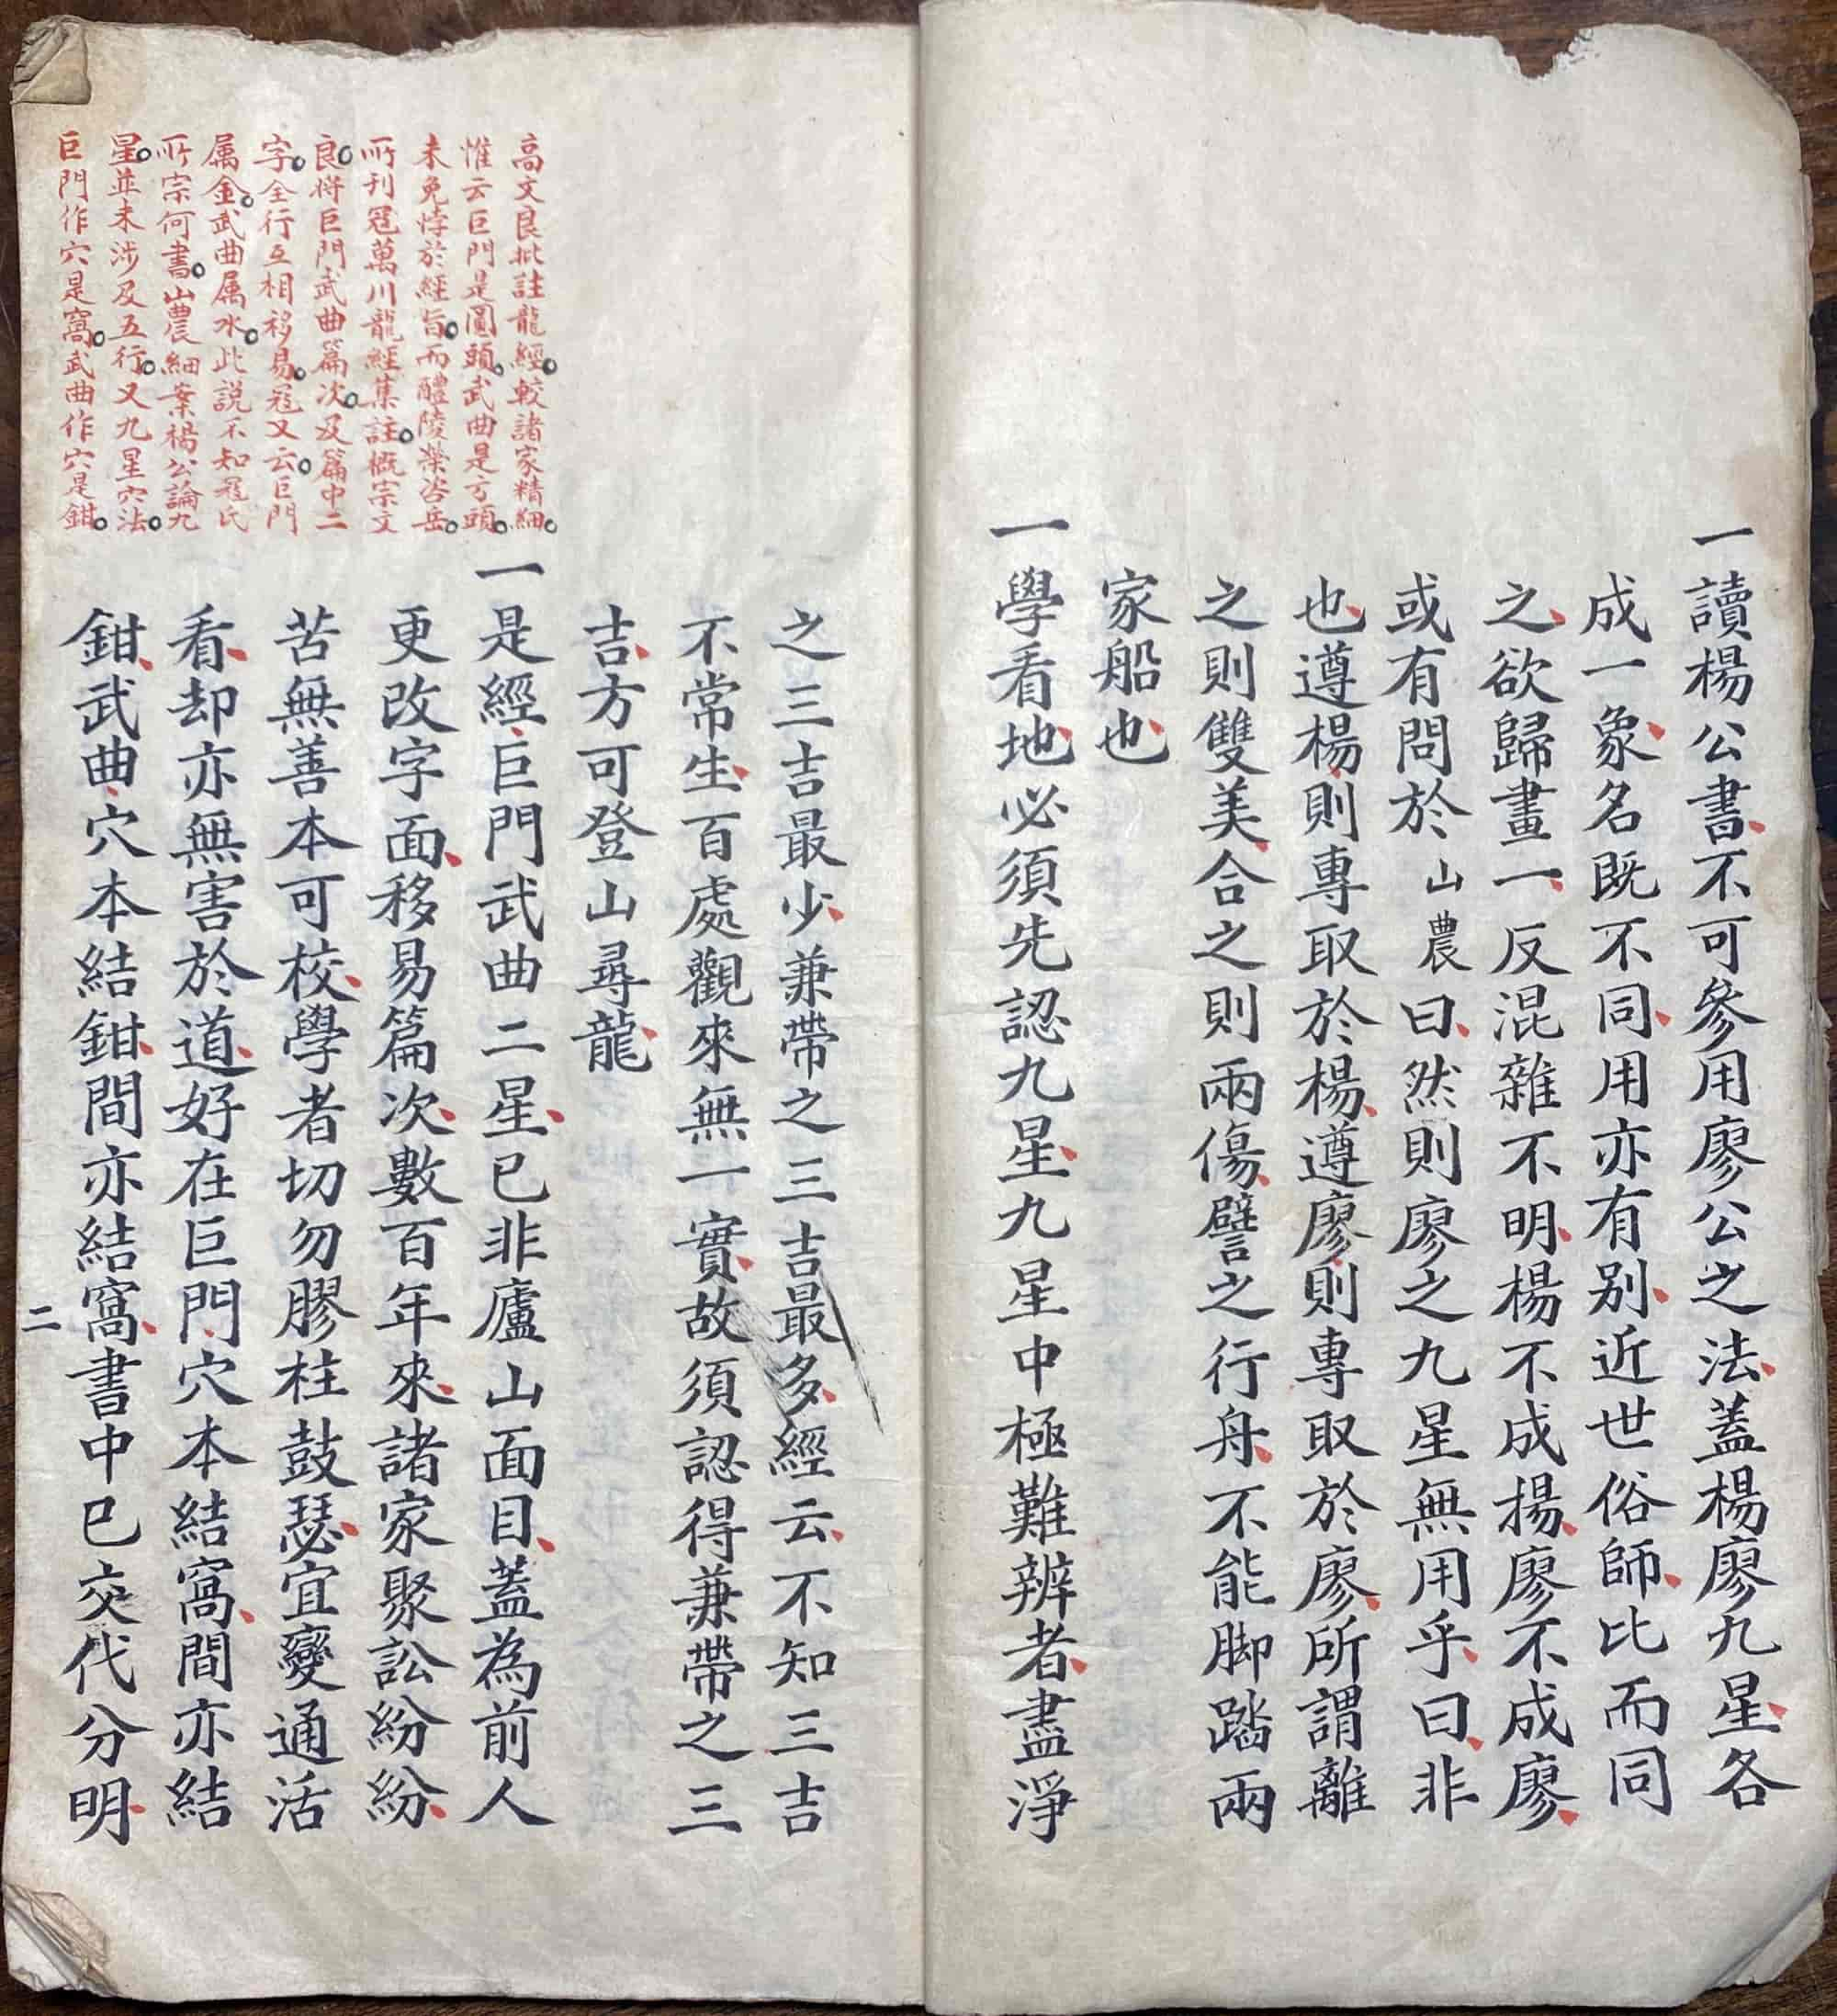 一讀楊公書不可參用廖公之法蓋楊廖九星各
成一象名既不同用亦有別近世俗師比而同
之欲歸畫一反混雜不明楊不成楊廖不成廖
或有問於山農曰然則廖之九星無用乎曰非
也遵楊則專取於楊遵廖則專取於廖所謂離
之則雙美合之則兩傷譬之行舟不能脚踏兩
家船也
一學看地必須先認九星九星中極難辨者盡淨
之三吉最少兼帶之三吉最多經云不知三吉
不常生百處觀來無一實故須認得兼帶之三
吉方可登山尋龍
一是經巨門武曲二星已非廬山面目蓋為前人
更改字面移易篇次數百年來諸家聚訟紛紛
苦無善本可校學者切勿膠柱鼓瑟宜變通活
看却亦無害於道好在巨門穴本結窩間亦結
鉗武曲穴本結鉗間亦結窩書中已交代分明
二
高文良批註龍經較諸家精細
惟云巨門是圓頭武曲是方頭
未免悖於經旨而醴陵榮咨岳
所刊寇萬川龍經集註概宗文
良將巨門武曲篇次及篇中二
字全行互相移易寇又云巨門
属金武曲属水此說不知寇氏
所宗何書山農細案楊公論九
星並未涉及五行又九星穴法
巨門作穴是窩武曲作穴是鉗